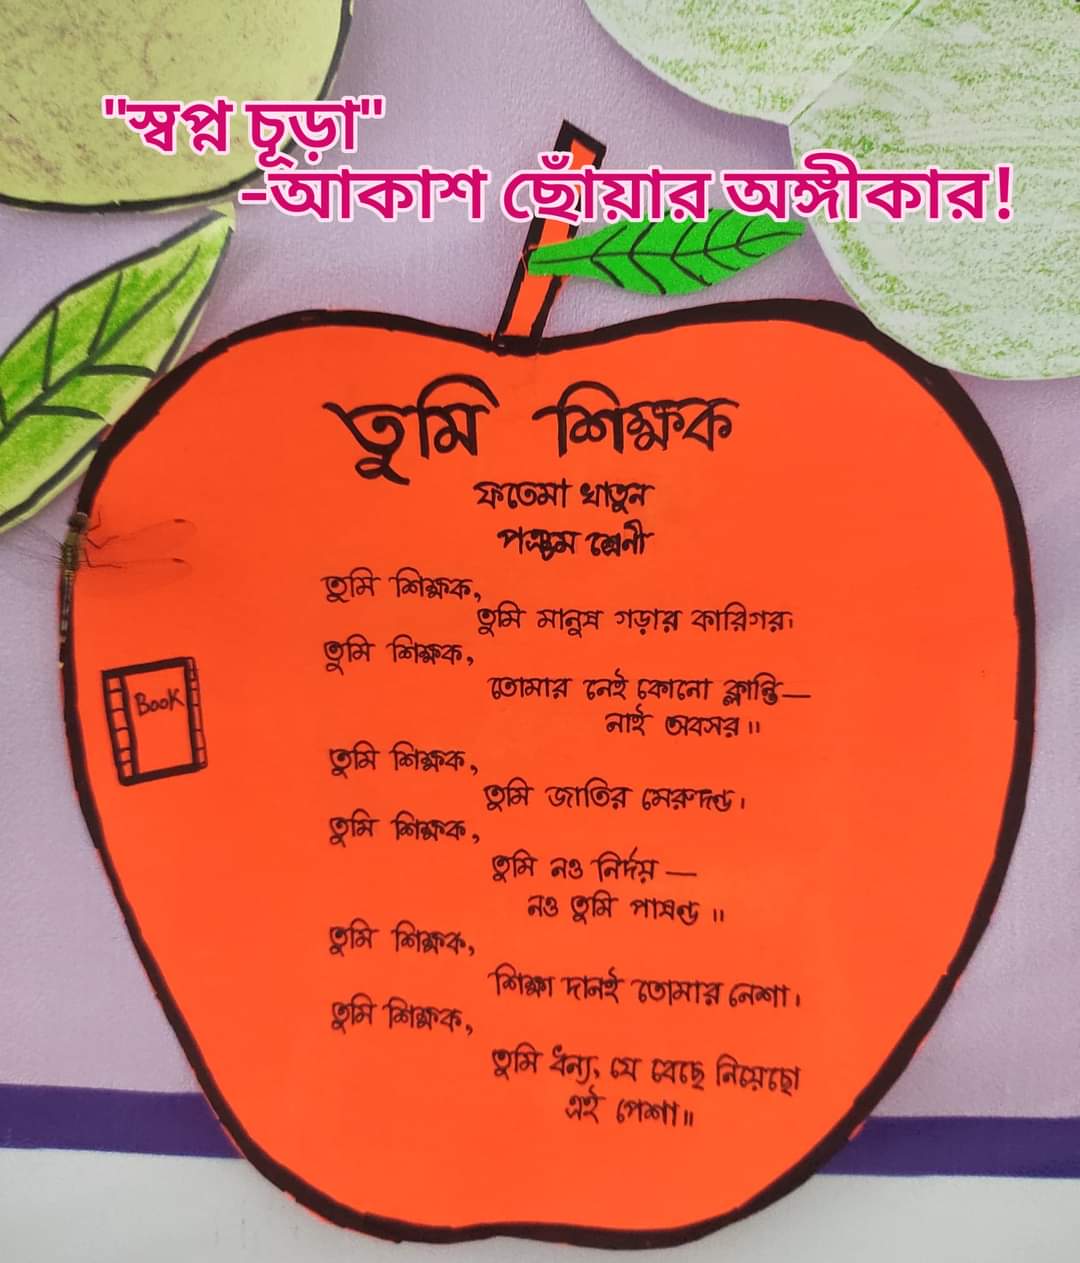 "স্বপ্ন চূড়া"
-আকাশ ছোঁয়ার অঙ্গীকার!
তুমি শিক্ষক
ফতেমা খাতুন
পঞ্চম শ্রেনী
তুমি শিক্ষক,
তুমি মানুষ গড়ার কারিগর।
তুমি শিক্ষক,
তোমার নেই কোনো ক্লান্তি—
নাই অবসর॥
তুমি শিক্ষক,
তুমি জাতির মেরুদণ্ড।
তুমি শিক্ষক,
তুমি নও নির্দয় —
নও তুমি পাষণ্ড॥
তুমি শিক্ষক,
শিক্ষা দানই তোমার নেশা।
তুমি শিক্ষক,
তুমি ধন্য, যে বেছে নিয়েছো
এই পেশা॥
Book